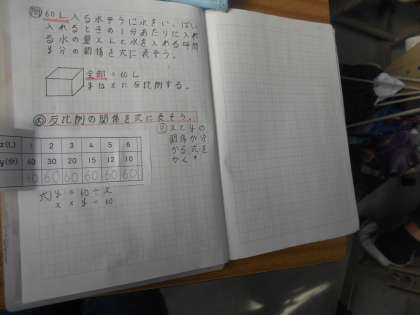 問 60L入る水そうに水をいっぱい
入れるときの1分あたりに入れ
る水の量xLと水を入れる時間
y分の関係を式に表そう。
全部 = 60L
yはxに反比例する。
反比例の関係を式に表そう。
xとyの
関係が分
かる式を
かく。
x(L) 1 2 3 4 5 6
y(分) 60 30 20 15 12 10
60 60 60 60 60 60
式 y = 60 ÷ x
x × y = 60